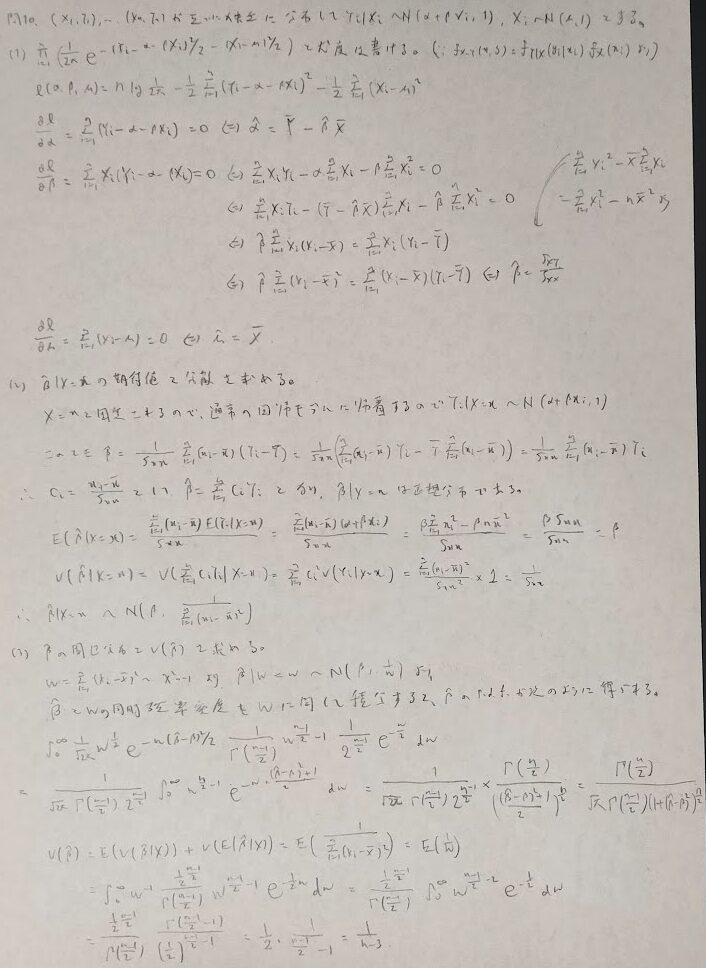 問10. (X₁,Y₁),…(Xₙ,Yₙ) が互いに独立に分布して Yᵢ|Xᵢ ~N(α+βXᵢ,1), Xᵢ~N(μ,1) とする。
(1) Π_{i=1}^n (1/2π e^{-(Yᵢ-α-βXᵢ)²/2 - (Xᵢ-μ)²/2}) と尤度は書ける。(∵ f_{X,Y}(x,y) = f_{Y|X}(yᵢ|xᵢ) f_X(xᵢ) より)
ℓ(α,β,μ) = n log 1/2π - 1/2 Σ_{i=1}^n (Yᵢ-α-βXᵢ)² - 1/2 Σ_{i=1}^n (Xᵢ-μ)²
∂ℓ/∂α = Σ_{i=1}^n (Yᵢ-α-βXᵢ) = 0 ⇔ α̂ = Ȳ - β̂X̄
∂ℓ/∂β = Σ_{i=1}^n Xᵢ(Yᵢ-α-βXᵢ) = 0 ⇔ Σ_{i=1}^n XᵢYᵢ - αΣ_{i=1}^n Xᵢ - βΣ_{i=1}^n Xᵢ² = 0
⇔ Σ_{i=1}^n XᵢYᵢ - (Ȳ - β̂X̄)Σ_{i=1}^n Xᵢ - β̂Σ_{i=1}^n Xᵢ² = 0
⇔ β̂Σ_{i=1}^n Xᵢ(Xᵢ-X̄) = Σ_{i=1}^n Xᵢ(Yᵢ-Ȳ)
⇔ β̂Σ_{i=1}^n (Xᵢ-X̄)² = Σ_{i=1}^n (Xᵢ-X̄)(Yᵢ-Ȳ) ⇔ β̂ = Sxy/Sxx
Σ_{i=1}^n Xᵢ² - X̄Σ_{i=1}^n Xᵢ
= Σ_{i=1}^n Xᵢ² - nX̄² より
∂ℓ/∂μ = Σ_{i=1}^n (Xᵢ-μ) = 0 ⇔ μ̂ = X̄.
(2) β̂|X=x の期待値と分散を求める。
X=xと固定されるので、通常の回帰モデルに帰着するので Yᵢ|X=x ~N(α+βxᵢ,1)
このとき β̂ = 1/Sxx Σ_{i=1}^n (xᵢ-x̄)(Yᵢ-Ȳ) = 1/Sxx (Σ_{i=1}^n (xᵢ-x̄)Yᵢ - ȲΣ_{i=1}^n (xᵢ-x̄)) = 1/Sxx Σ_{i=1}^n (xᵢ-x̄)Yᵢ
∴ cᵢ = (xᵢ-x̄)/Sxx として β̂ = Σ_{i=1}^n cᵢYᵢ とかけ, β̂|X=x は正規分布である。
E(β̂|X=x) = Σ_{i=1}^n (xᵢ-x̄)E(Yᵢ|X=x)/Sxx = Σ_{i=1}^n (xᵢ-x̄)(α+βxᵢ)/Sxx = (βΣ_{i=1}^n xᵢ² - βnx̄²)/Sxx = βSxx/Sxx = β
V(β̂|X=x) = V(Σ_{i=1}^n cᵢYᵢ|X=x) = Σ_{i=1}^n cᵢ²V(Yᵢ|X=x) = Σ_{i=1}^n (xᵢ-x̄)²/Sxx² × 1 = 1/Sxx
∴ β̂|X=x ~ N(β, 1/Σ_{i=1}^n (xᵢ-x̄)²)
(3) β̂の周辺分布とV(β̂)を求める。
W = Σ_{i=1}^n (Xᵢ-X̄)² ~ χ²ₙ₋₁ より β̂|W=w ~ N(β, 1/w) より,
β̂とWの同時確率密度をWに関して積分すると、β̂のp.d.f.が次のように得られる。
∫₀^∞ 1/√2π w^{1/2} e^{-w(β̂-β)²/2} 1/Γ((n-1)/2) w^{(n-1)/2-1} 1/2^{(n-1)/2} e^{-w/2} dw
= 1/(√2π Γ((n-1)/2) 2^{(n-1)/2}) ∫₀^∞ w^{n/2-1} e^{-w·((β̂-β)²+1)/2} dw = 1/(√2π Γ((n-1)/2) 2^{(n-1)/2}) × Γ(n/2)/(((β̂-β)²+1)/2)^{n/2} = Γ(n/2)/(√π Γ((n-1)/2)(1+(β̂-β)²)^{n/2})
V(β̂) = E(V(β̂|X)) + V(E(β̂|X)) = E(1/Σ_{i=1}^n (Xᵢ-X̄)²) = E(1/W)
= ∫₀^∞ w⁻¹ (1/2)^{(n-1)/2}/Γ((n-1)/2) w^{(n-1)/2-1} e^{-1/2 w} dw = (1/2)^{(n-1)/2}/Γ((n-1)/2) ∫₀^∞ w^{(n-1)/2-2} e^{-1/2 w} dw
= (1/2)^{(n-1)/2}/Γ((n-1)/2) Γ((n-1)/2-1)/(1/2)^{(n-1)/2-1} = 1/2 · 1/((n-1)/2-1) = 1/(n-3).